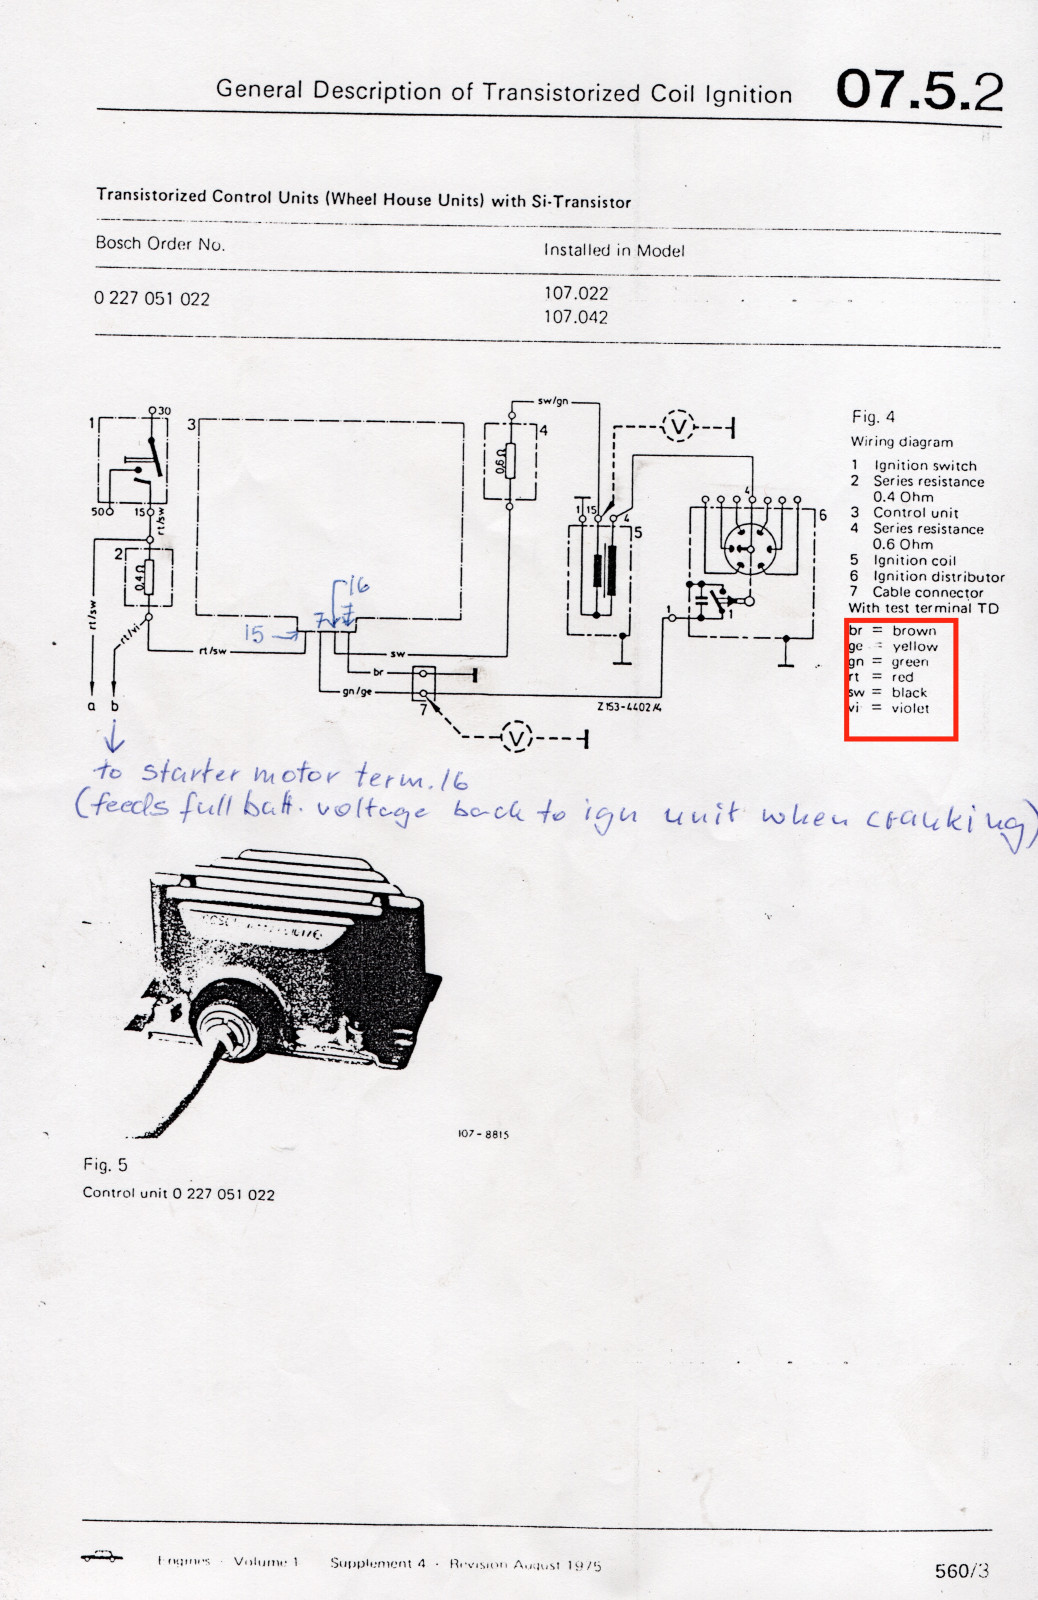 General Description of Transistorized Coil Ignition 07.5.2
Transistorized Control Units (Wheel House Units) with Si-Transistor
Bosch Order No. Installed in Model
0 227 051 022 107.022
107.042
1
30
50
15
rt/sw
2
0,4 Ω
rt/sw
rt/vi
a b
rt/sw
3
15
7
16
sw
br
gn/ge
7
V
sw/gn
4
0,6 Ω
V
1 15 4
5
4
6
1
1
Z153-4402/4
Fig. 4
Wiring diagram
1 Ignition switch
2 Series resistance
0.4 Ohm
3 Control unit
4 Series resistance
0.6 Ohm
5 Ignition coil
6 Ignition distributor
7 Cable connector
With test terminal TD
br = brown
ge = yellow
gn = green
rt = red
sw = black
vi = violet
to starter motor term. 16
(feeds full batt. voltage back to ign unit when cranking)
107-8815
Fig. 5
Control unit 0 227 051 022
Engines - Volume 1 Supplement 4 - Revision August 1975 560/3